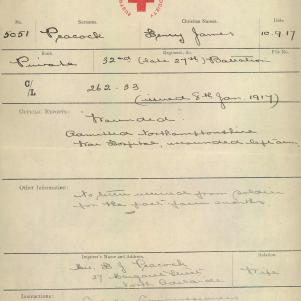 SOCIETY
No. Surname. Christian Names. Date.
5051 Peacock Henry James 10.9.17
Rank. Regiment, &c.
Private 32nd (late 27th) Battalion
C/L 262-33
(issued 8th Jan. 1917)
OFFICIAL REPORTS:
"Wounded"
Admitted Northamptonshire
War Hospital, wounded left arm
Other Information:
No letter received from soldier
for the past four months
Inquirer's Name and Address. Relation.
Mrs. Peacock Wife
27 Margaret Street
North Adelaide
Instructions: